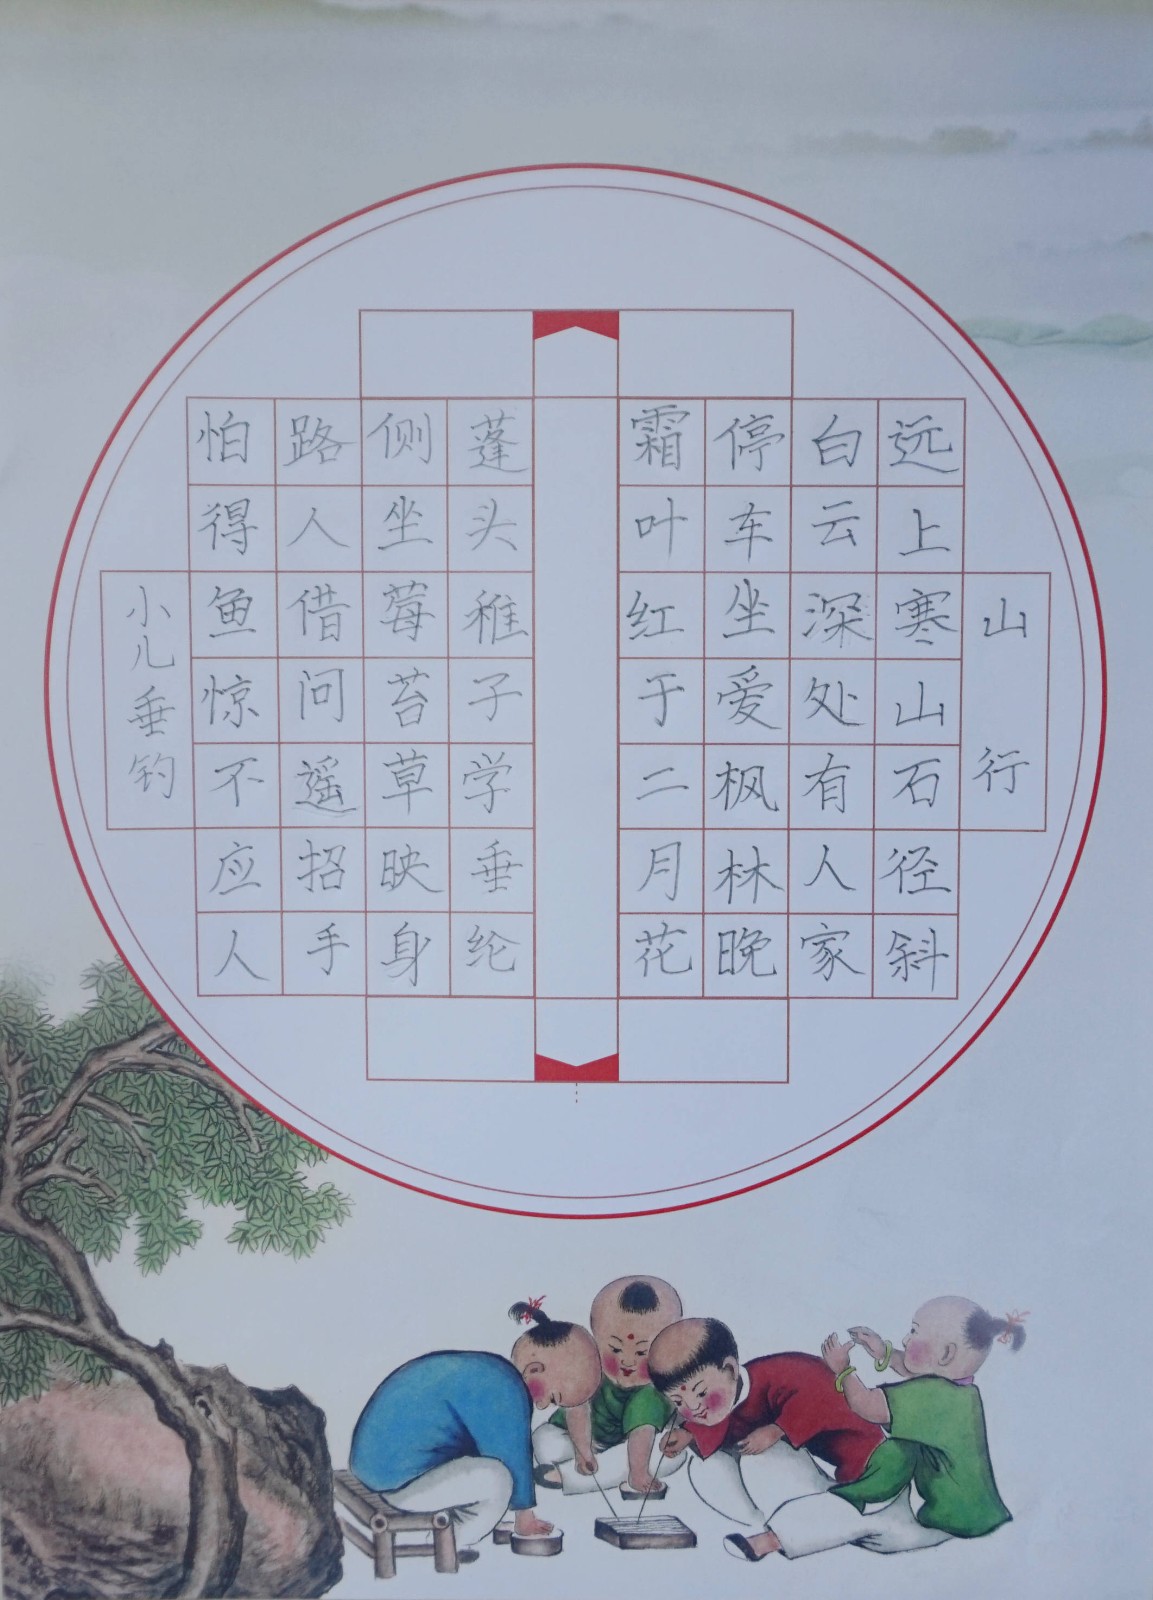 山行
远上寒山石径斜
白云深处有人家
停车坐爱枫林晚
霜叶红于二月花
蓬头稚子学垂纶
侧坐莓苔草映身
路人借问遥招手
怕得鱼惊不应人
小儿垂钓